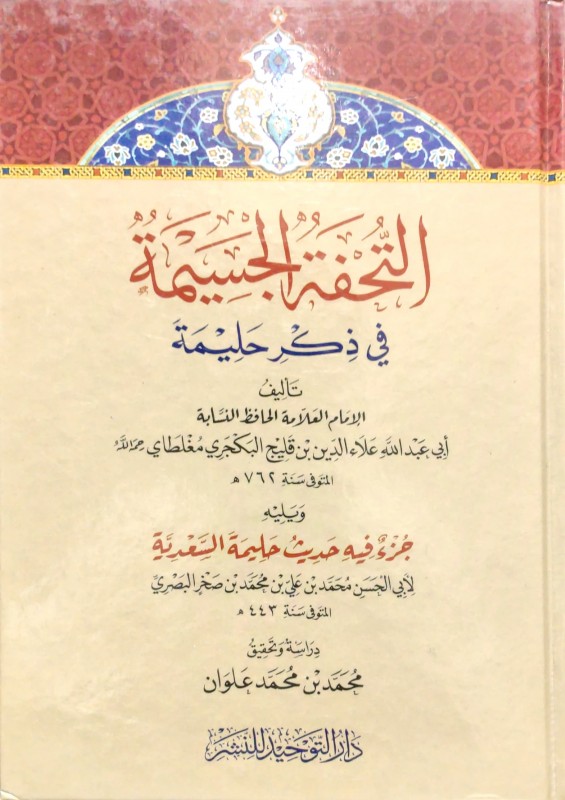 التُّحْفَةُ الجَسِيمَةُ
فِي ذِكْرِ حَلِيمَةَ
تَأليفُ
الإمَام العَلَّامَة الحَافِظ النَّسَّابَة
أبي عَبْد اللَّه عَلَاء الدِّين بْن قَلِيج البَكْجَري مُغْلَطَاي رحمه الله
المتوفى سَنَة ٧٦٢ هـ
وَيَلِيْهِ
جُزْءٌ فِيهِ حَدِيثُ حَلِيمَةَ السَّعْدِيَّةِ
لأَبِي الحَسَن مُحَمَّد بْن عَلِيّ بْن مُحَمَّد بْن صَخْر البَصْرِيّ
المتوفى سَنَة ٤٤٣ هـ
دِرَاسَةُ وَتَحْقِيقُ
مُحَمَّد بْن مُحَمَّد عَلْوَان
دَارُ التَّوْحِيدِ لِلنَّشْرِ